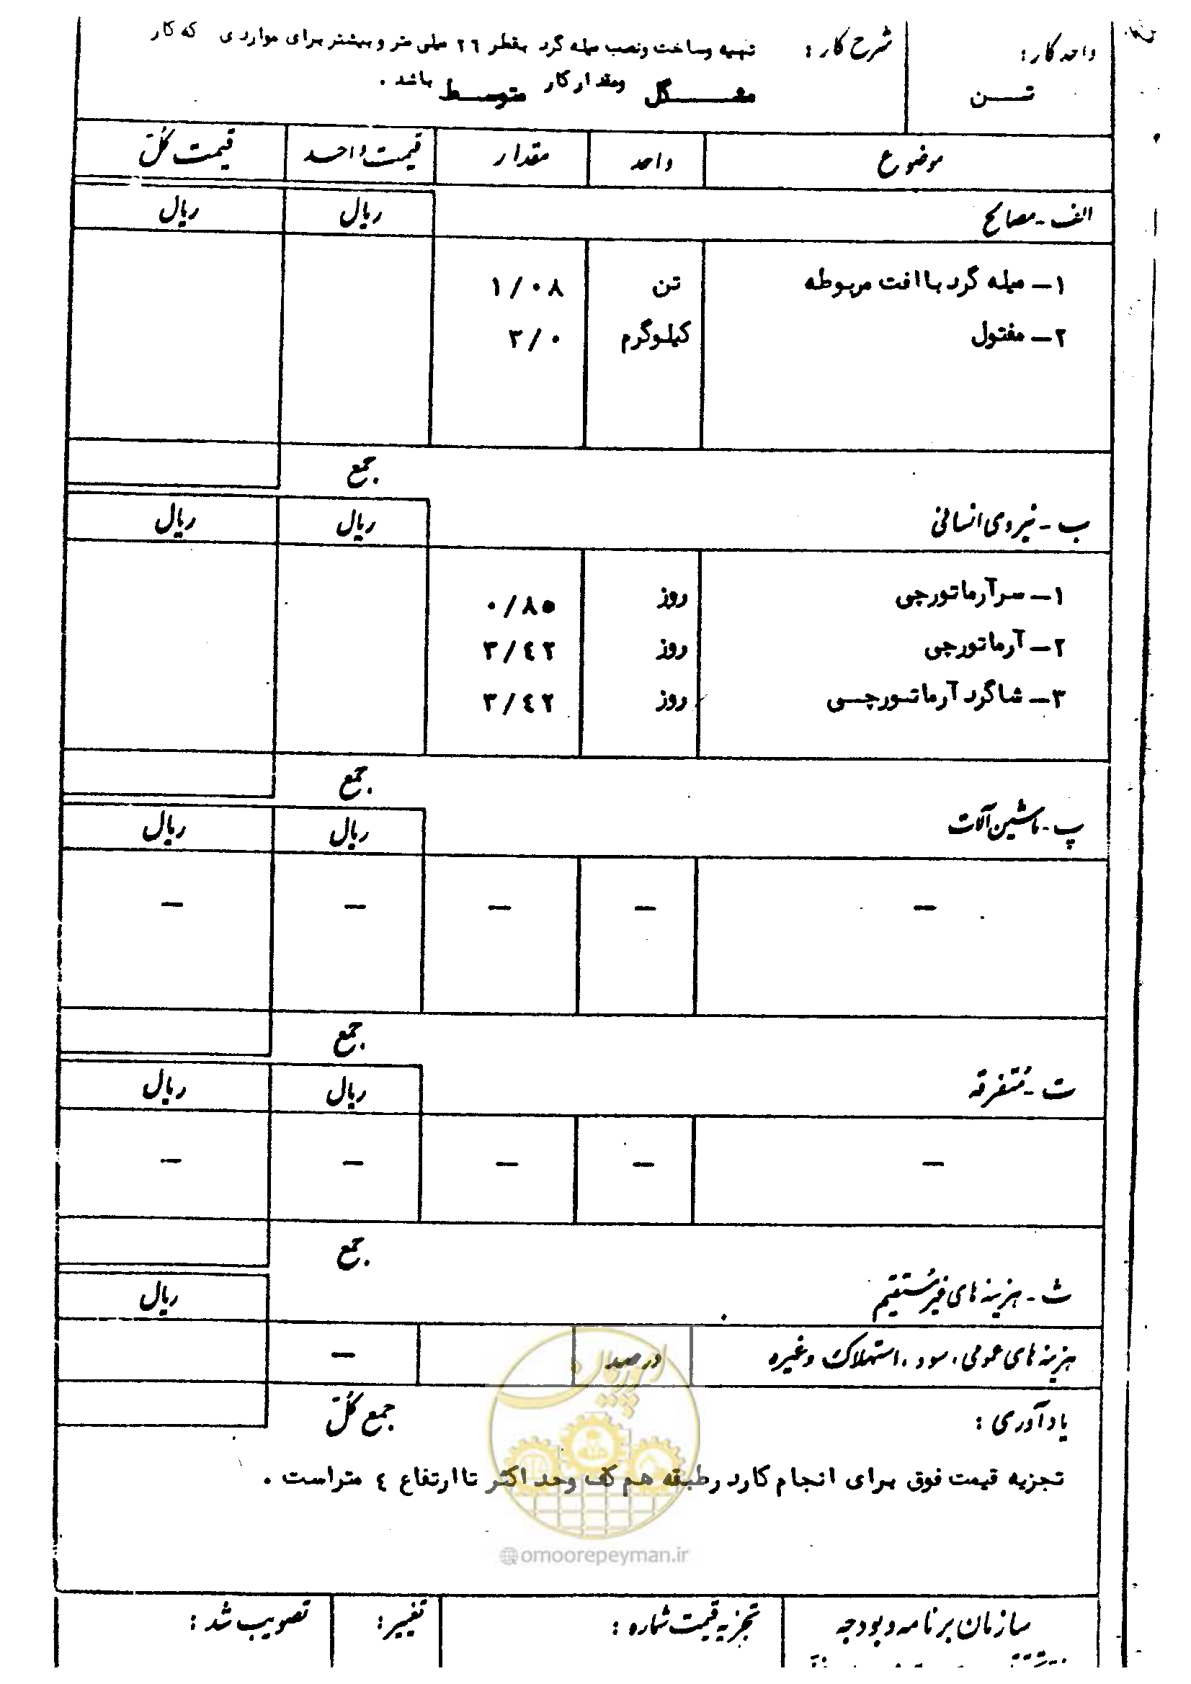 واحد کار :
تـــن
شرح کار :
تهیه وساخت ونصب میله گرد بقطر ٢٦ میلی متر وبیشتر برای مواردی که کار
مشـــکل ومقدارکار متوســـط باشد .
موضوع واحد مقدار قیمت واحد قیمت کُلّ
الف - مصالح ریال ریال
۱ـ میله گرد باافت مربوطه تن ۱/۰۸
۲ـ مفتول کیلوگرم ۳/۰
جمع
ب - نیروی انسانی ریال ریال
۱ـ سرآرماتورچی روز ۰/۸۵
۲ـ آرماتورچی روز ۳/٤۲
۳ـ شاگرد آرماتورچی روز ۳/٤۲
جمع
پ - ماشین آلات ریال ریال
— — — — —
جمع
ت - مُتفرقه ریال ریال
— — — — —
جمع
ث - هزینه های غیرمُستقیم ریال
هزینه های عمومی ، سود ، استهلاک وغیره درصد —
جمع کُلّ
یادآوری :
تجزیه قیمت فوق برای انجام کاردرطبقه هم کف وحداکثر تاارتفاع ٤ متراست .
امور پیمان
@omoorepeyman.ir
سازمان برنامه وبودجه تجزیه قیمت شماره : تغییر : تصویب شد :